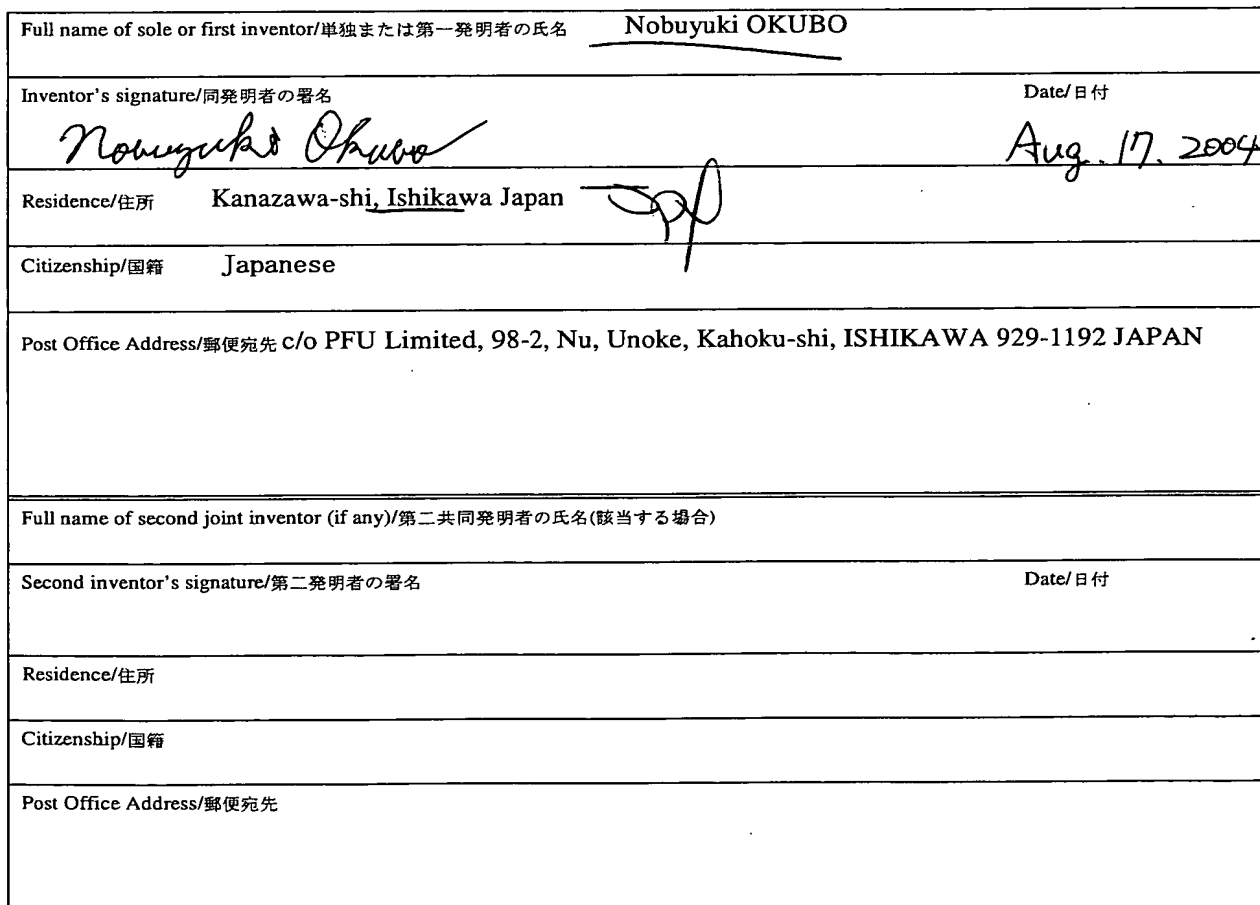 Full name of sole or first inventor/単独または第一発明者の氏名 Nobuyuki OKUBO
Inventor's signature/同発明者の署名 Date/日付
Nobuyuki Okubo Aug. 17. 2004
Residence/住所 Kanazawa-shi, Ishikawa Japan
Citizenship/国籍 Japanese
Post Office Address/郵便宛先 c/o PFU Limited, 98-2, Nu, Unoke, Kahoku-shi, ISHIKAWA 929-1192 JAPAN
Full name of second joint inventor (if any)/第二共同発明者の氏名(該当する場合)
Second inventor's signature/第二発明者の署名 Date/日付
Residence/住所
Citizenship/国籍
Post Office Address/郵便宛先